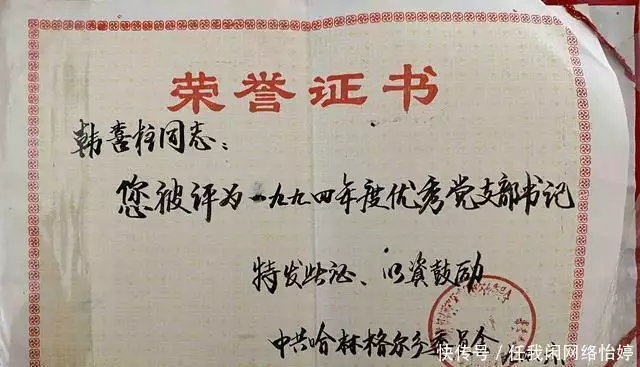 荣誉证书
韩喜柱同志：
您被评为一九九四年度优秀党支部书记
特发此证、以资鼓励
中共哈林格尔乡委员会
快传号 / 任我闲网络怡婷